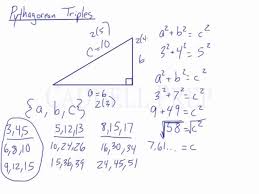 Pythagorean Triples
2(5)
c = 10
2(4
6
a = 6
2(3)
a² + b² = c²
3² + 4² = 5²
a² + b² = c²
3² + 7² = c²
9 + 49 = c²
√58 = √c²
7.61... = c
{a, b, c}
3,4,5 5,12,13 8,15,17
6,8,10 10,24,26 16,30,34
9,12,15 15,36,39 24,45,51